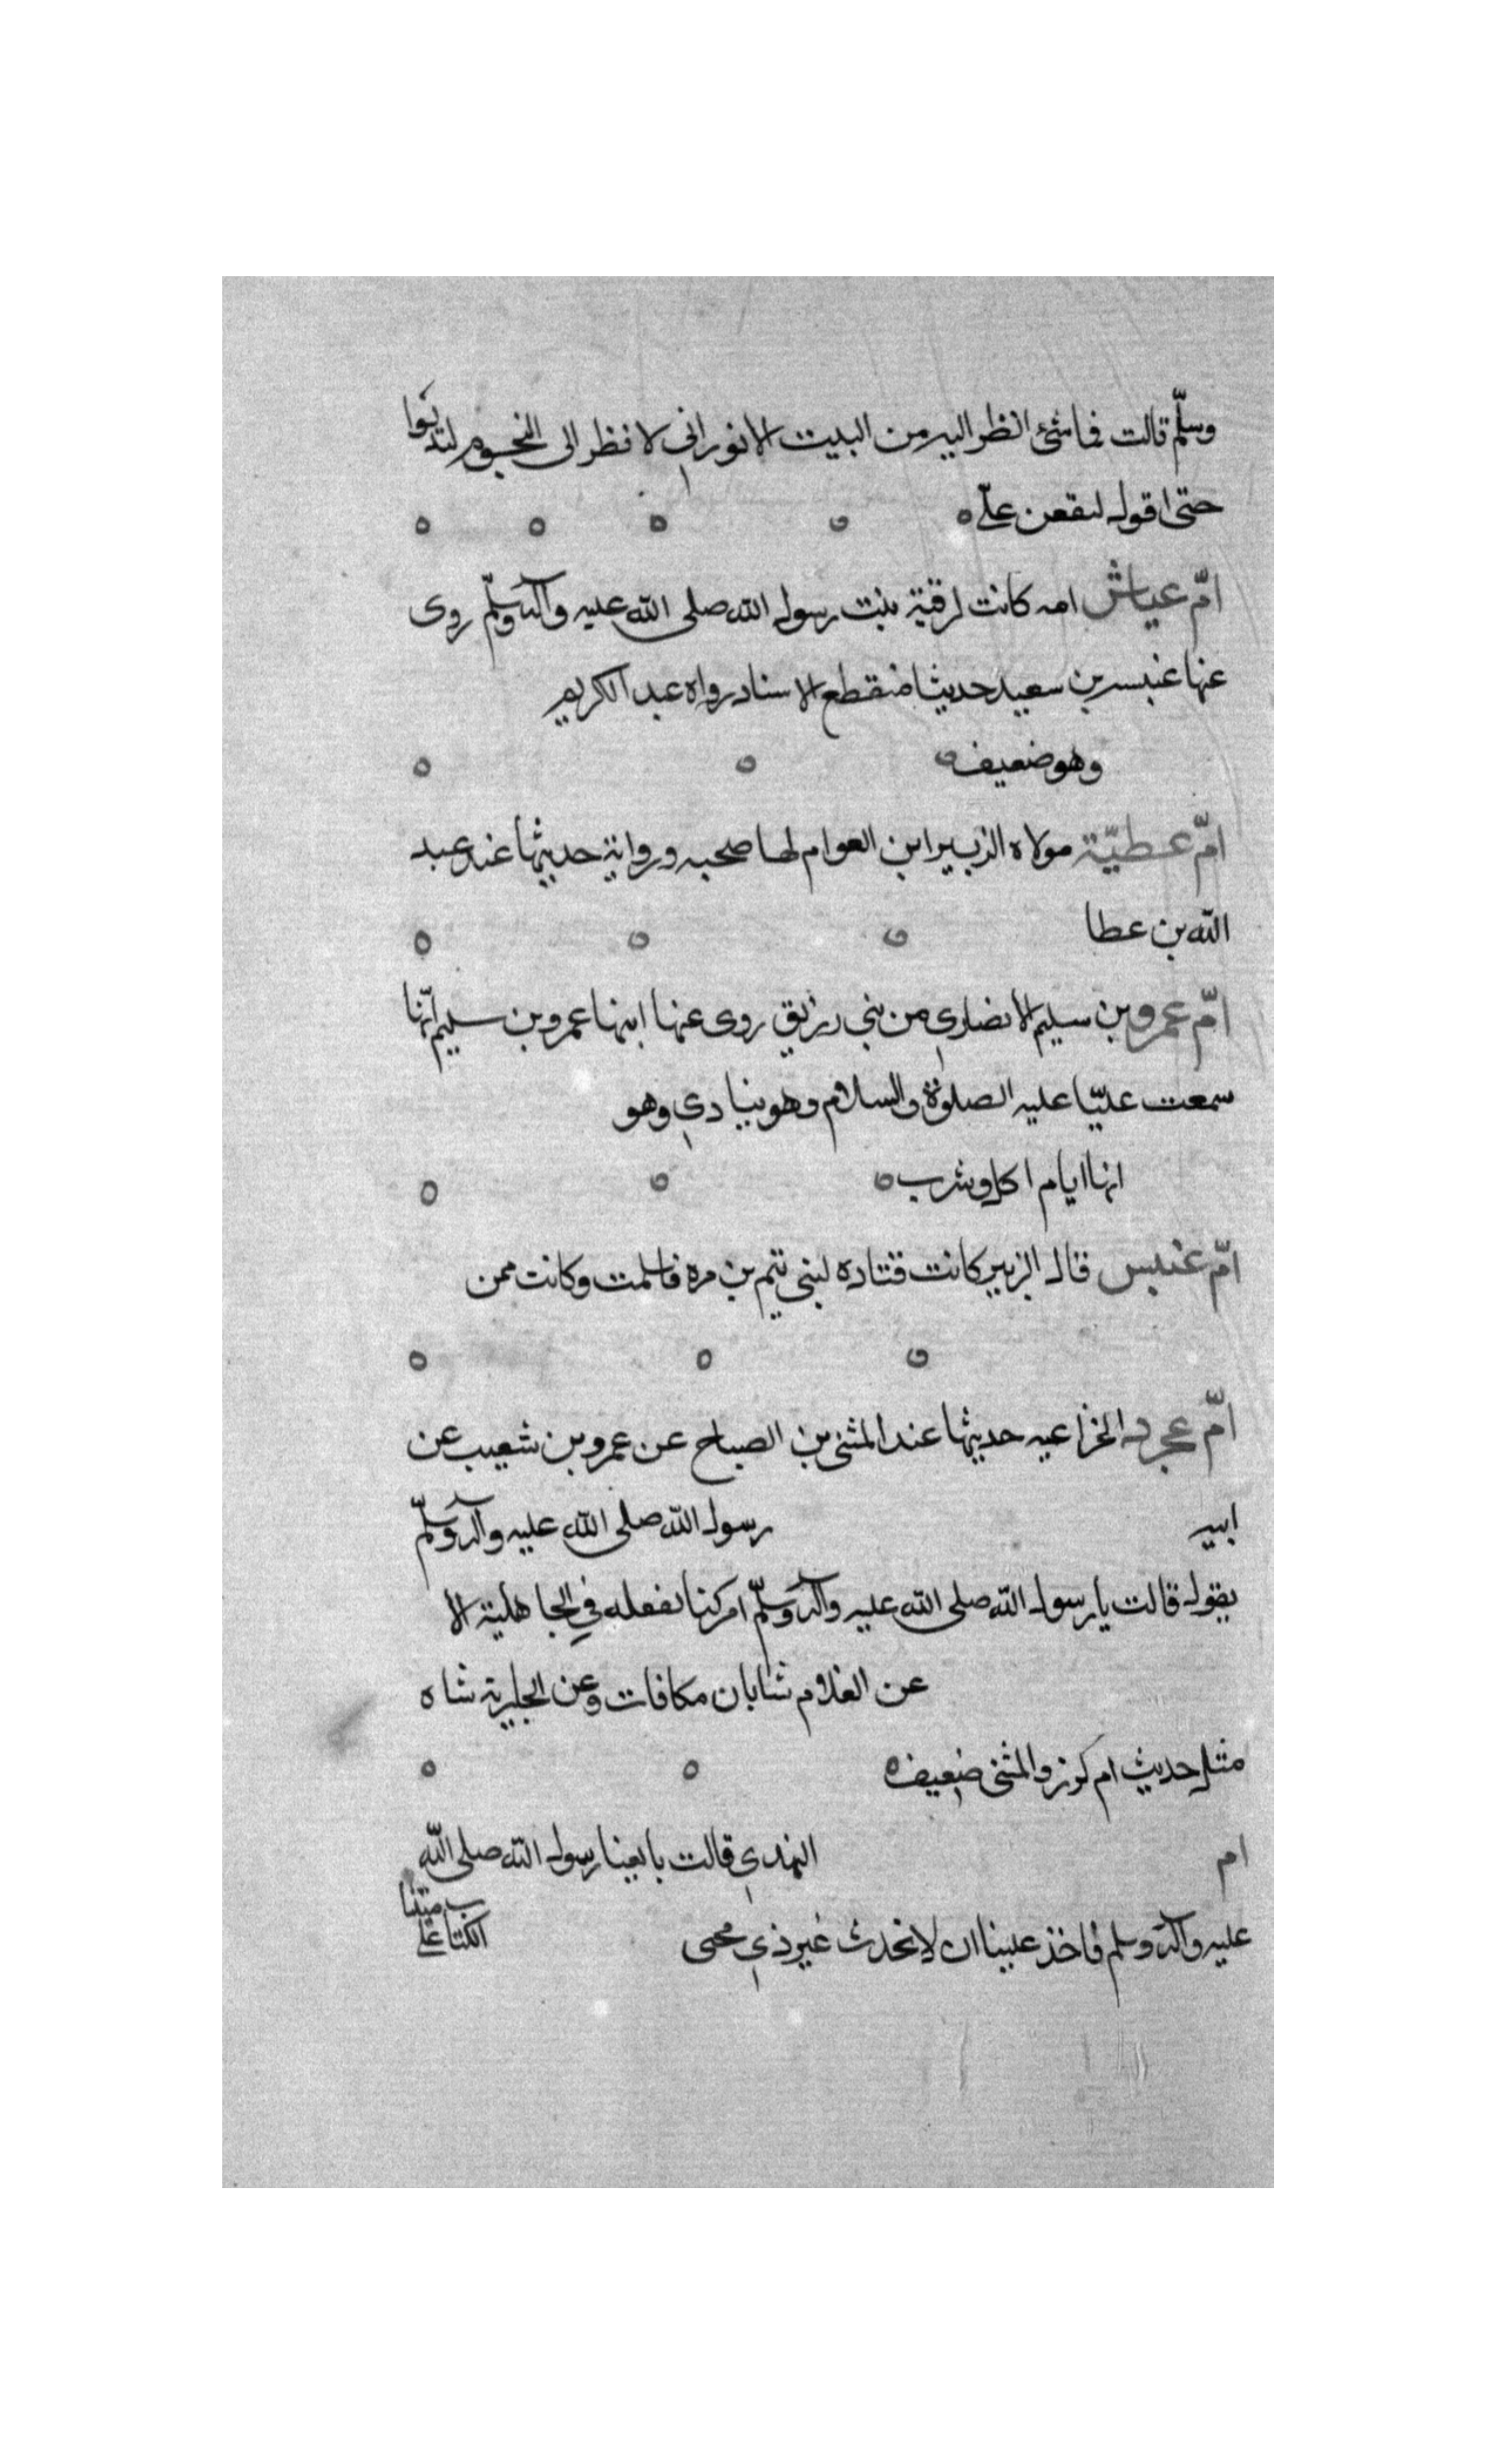 وسلّم قالت فما شئ انظر اليه من البيت الا نور اني لا نظر الى النجوم لتدنوا
حتى اقول لتقعن علّي
امّ عياش امه كانت لرقية بنت رسول الله صلى الله عليه وآله وسلّم روى
عنها عنبسه بن سعيد حديثا منقطع الاسناد رواه عبد الكريم
وهو ضعيف
امّ عطيّة مولاه الزبير ابن العوام لها صحبه ورواية حديثها عند عبد
الله بن عطا
امّ عمرو بن سليم الانصاري من بني رزيق روى عنها ابنها عمرو بن سليم انّها
سمعت عليّا عليه الصلوة والسلام وهو ينادي وهو
انها ايام اكل وشرب
امّ عنبس قال الزبير كانت فتاده لبنى تيم بن مره فاسلمت وكانت ممن
امّ عجرد الخزاعيه حديثها عند المثنى بن الصباح عن عمرو بن شعيب عن
ابيه رسول الله صلى الله عليه وآله وسلّم
يقول قالت يا رسول الله صلى الله عليه وآله وسلّم امر كنا نفعله في الجاهلية الا
عن الغلام شاتان مكافات وعن الجارية شاه
مثل حديث ام كرز والمثنى ضعيف
ام النهدي قالت بايعنا رسول الله صلى الله
عليه وآله وسلم فاخذ علينا ان لا نحدث غير ذي محمى